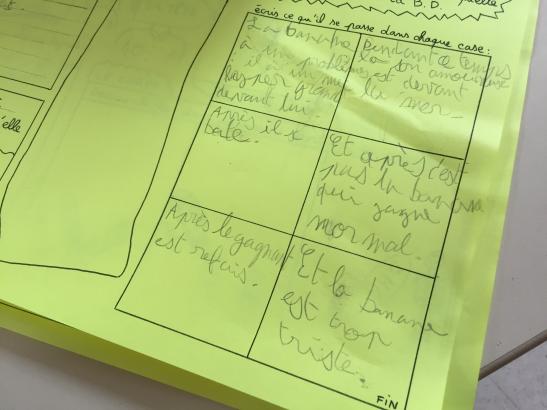 la B.D.
quelle
écris ce qu'il se passe dans chaque case :
La banane
à un problème
il a un mur
super grand
devant lui.
Pendant ce temps
la son amoureuse
est devant
la mer.
Après il se
bate.
Et après c'est
pas la banane
qui gagne
normal.
Après le gagnant
est refais.
Et la banane
est trop
triste.
FIN
qu'elle